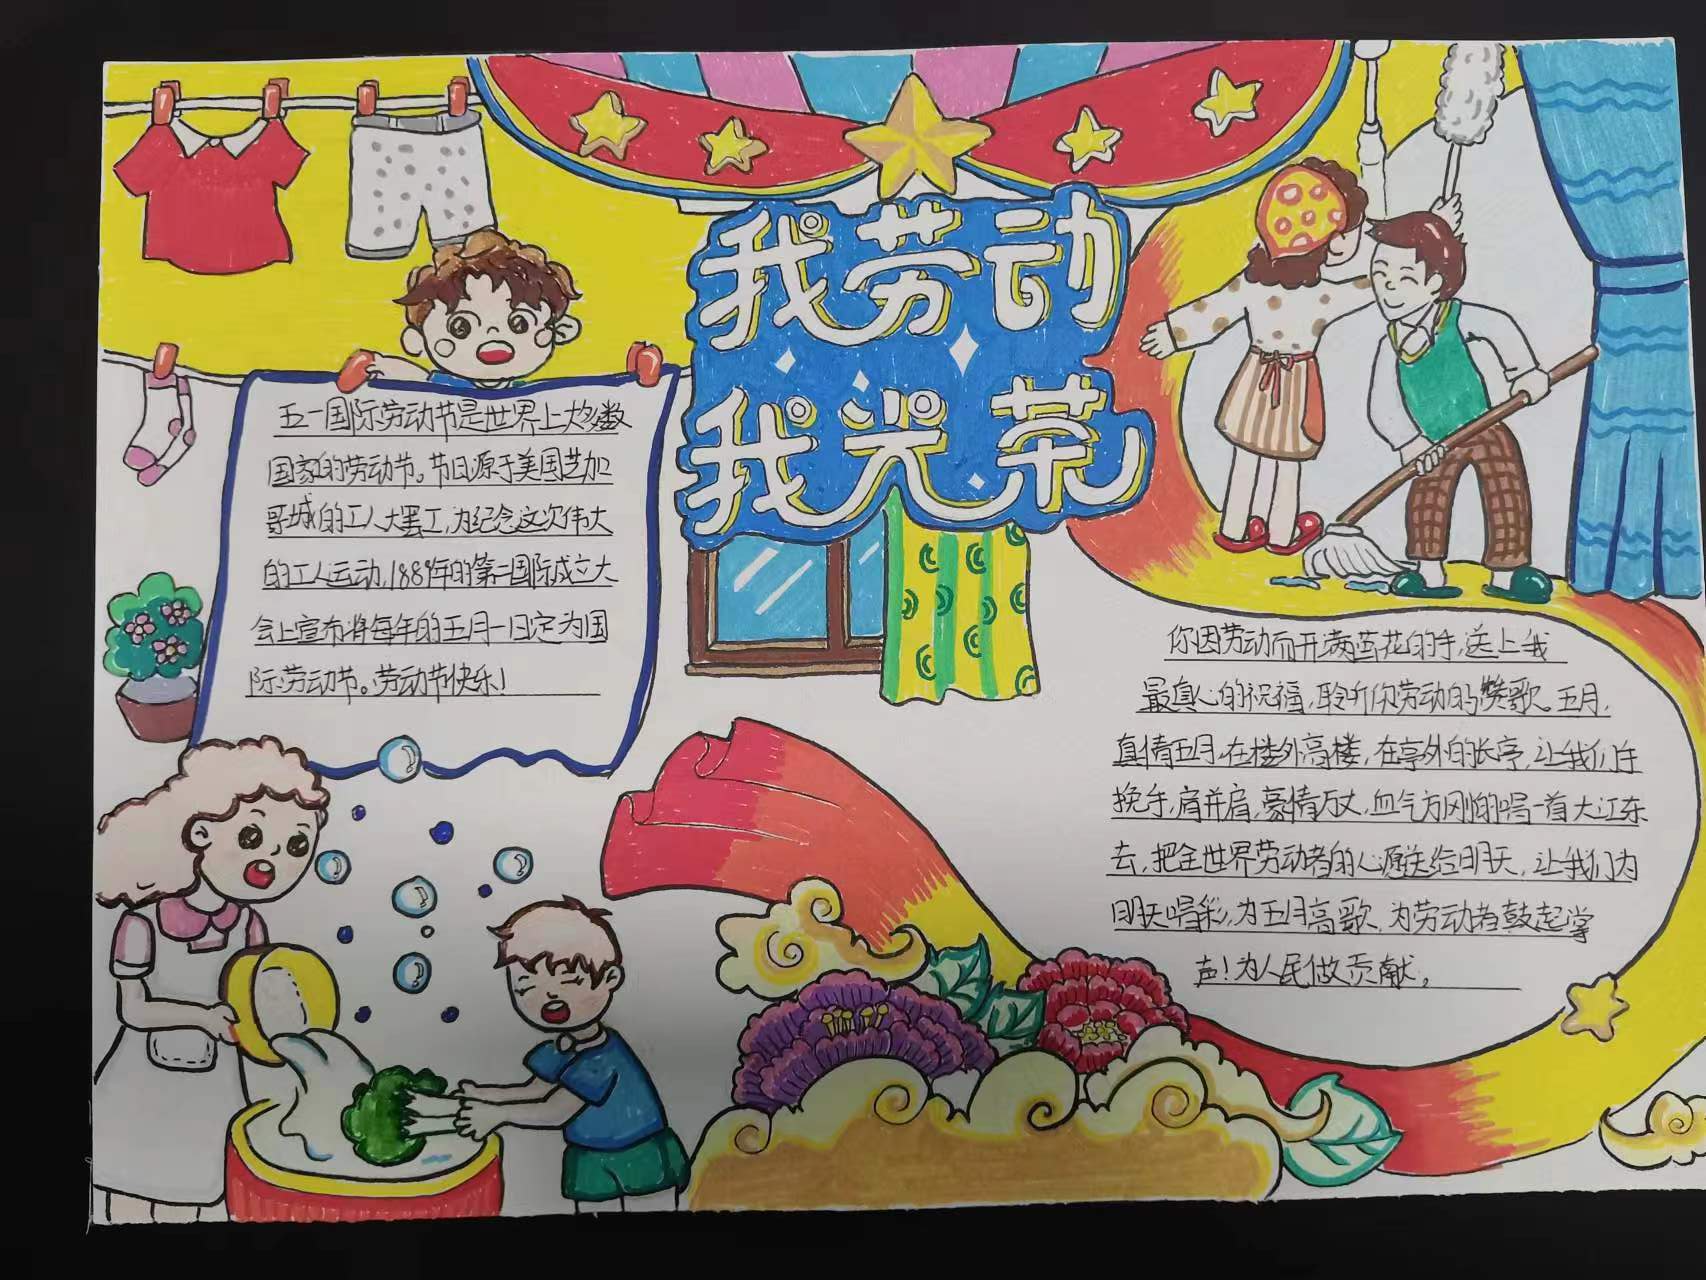 我劳动
我光荣
五一国际劳动节是世界上大多数
国家的劳动节。节日源于美国芝加
哥城的工人大罢工,为纪念这次伟大
的工人运动,1889年的第二国际成立大
会上宣布将每年的五月一日定为国
际劳动节。劳动节快乐!
你因劳动而开满茧花的手,送上我
最真心的祝福,聆听你劳动的赞歌,五月,
真情五月,在楼外高楼,在亭外的长亭,让我们手
挽手,肩并肩,豪情万丈,血气方刚的唱一首大江东
去,把全世界劳动者的心愿送给明天,让我们为
明天喝彩,为五月高歌,为劳动者鼓起掌
声!为人民做贡献。